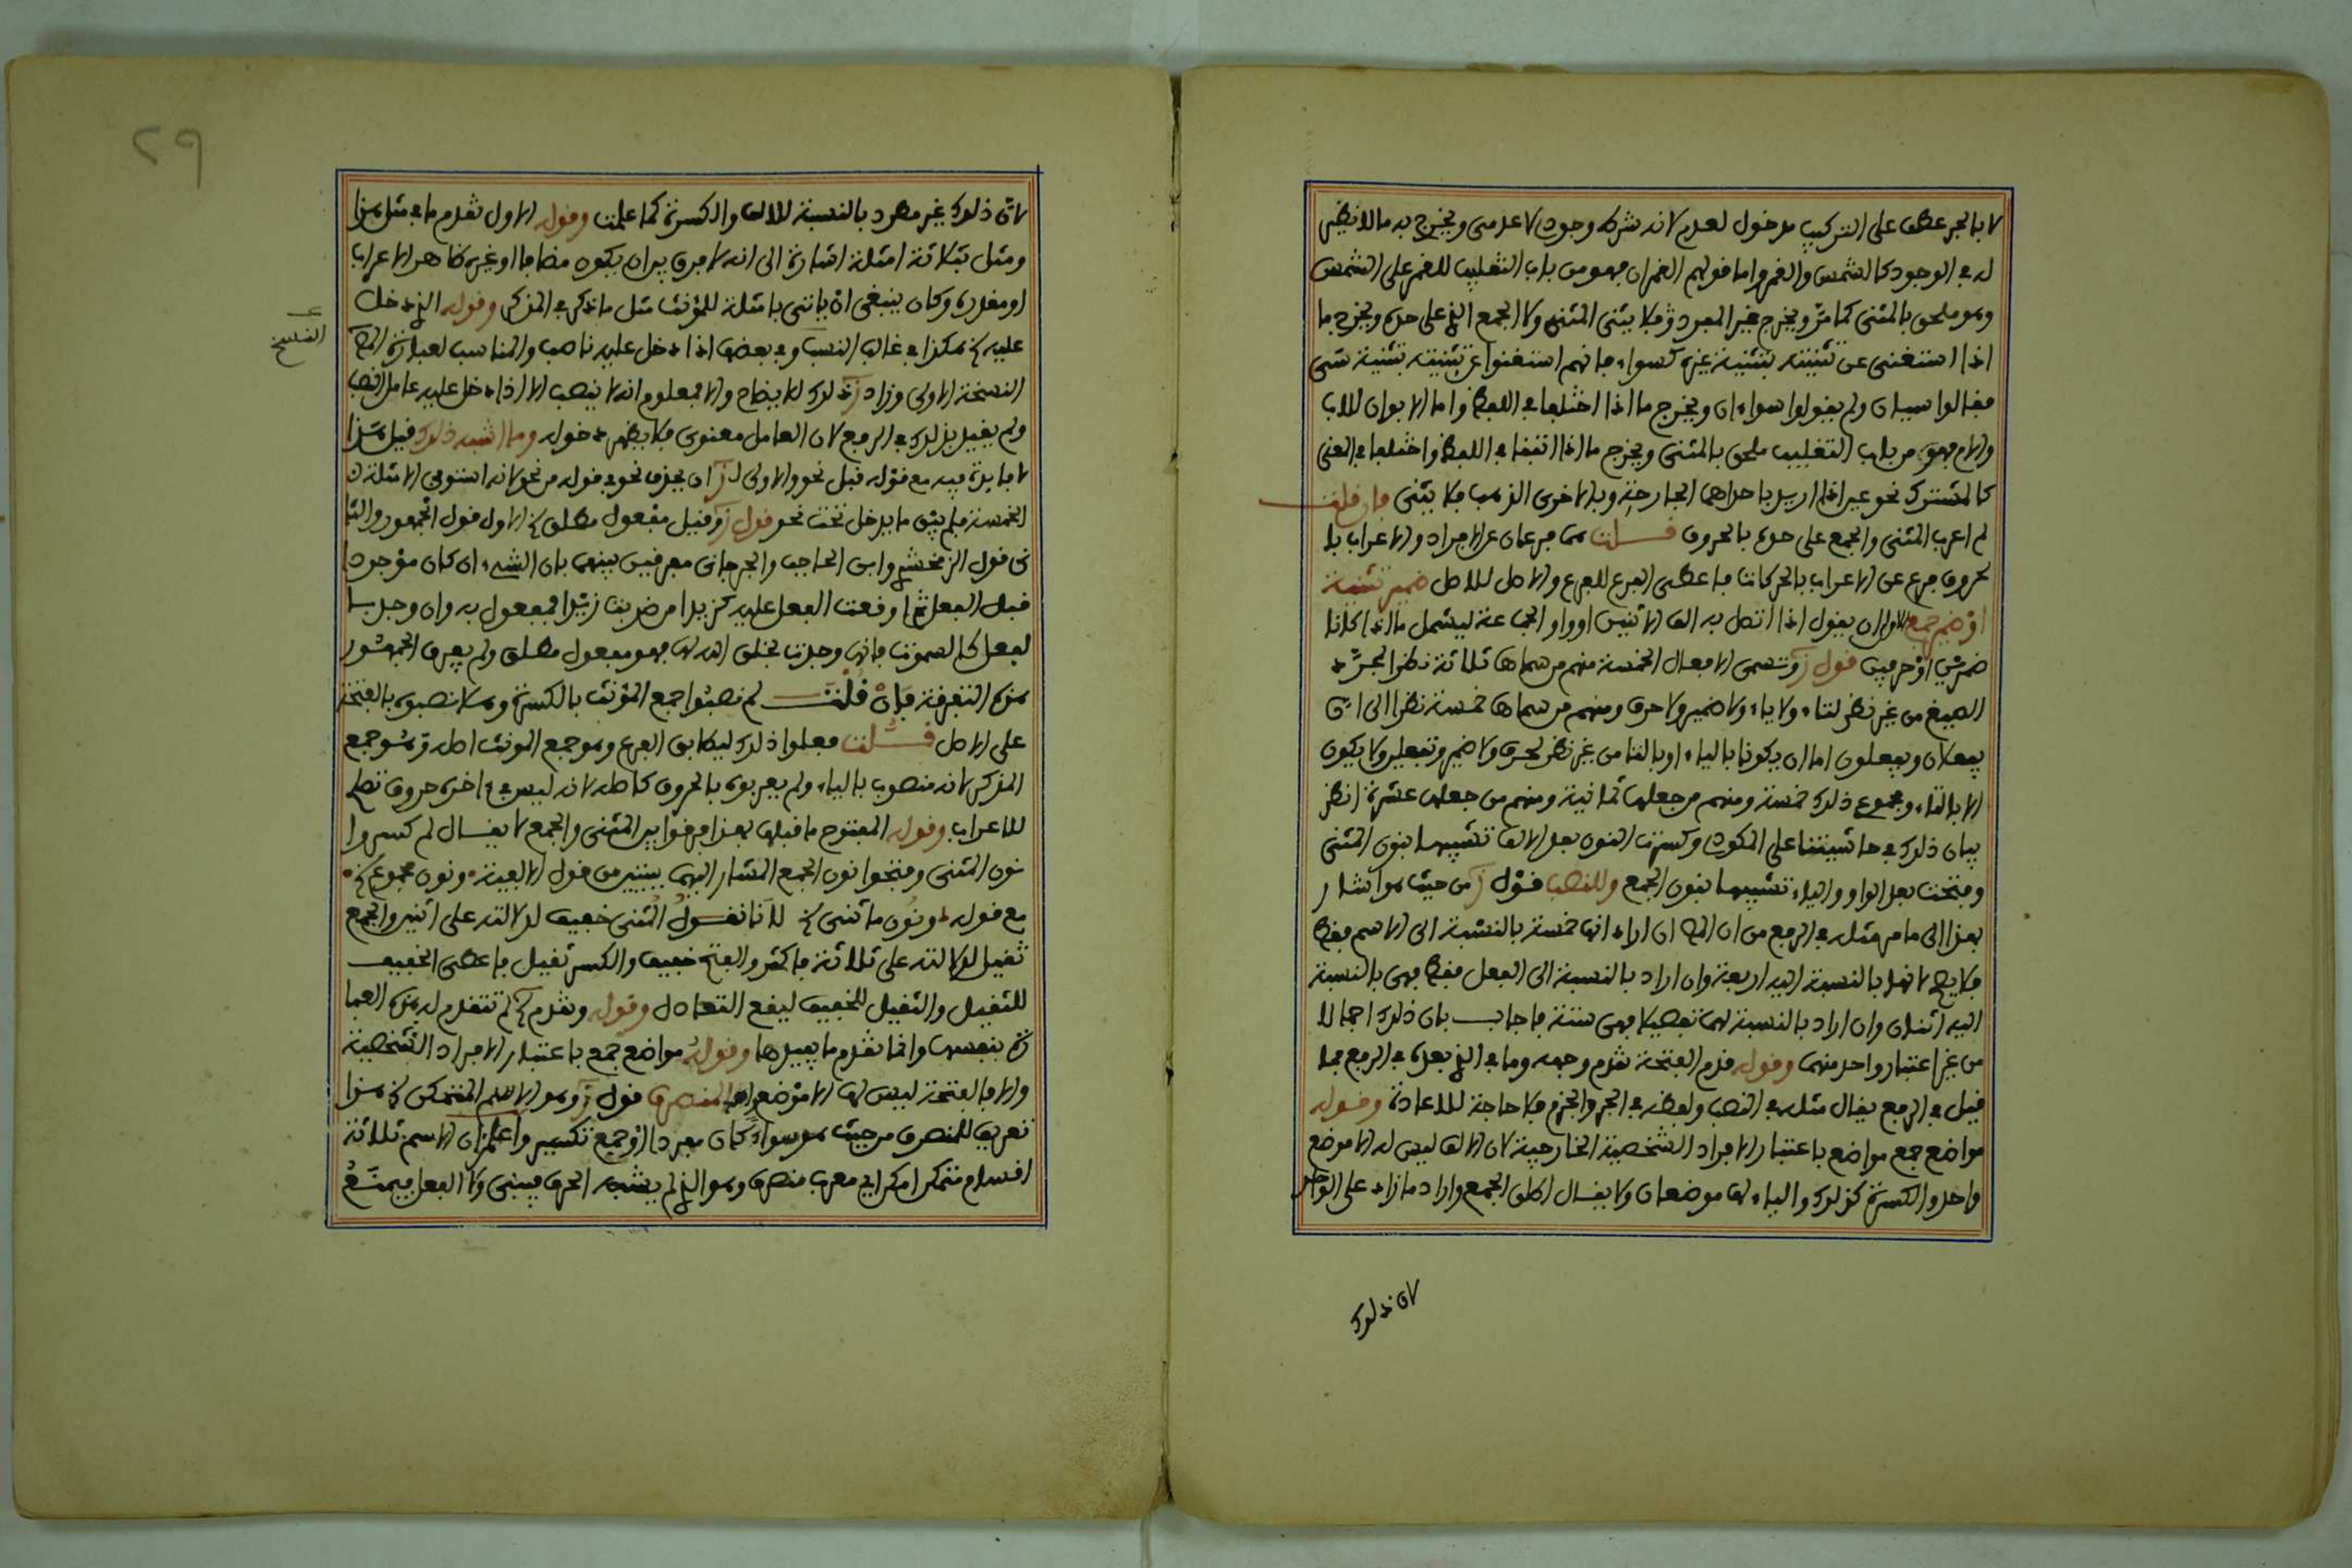 لا بالجر عطف على التركيب مدخول لعدم لانه شرط وجودى لا عدمى ويخرج به ما لا نظير
له في الوجود كالشمس والقمر واما قولهم القمران فهو من باب التغليب للقمر على الشمس
وهو ملحق بالمثنى كما مرّ ويخرج غير المعرد فلا يثنى المثنى ولا الجمع الذي على حده ويخرج ما
اذا استغنى عن تثنيته بتثنية غيره كسواء فانهم استغنوا عن تثنيته بتثنية سى
فقالوا سيان ولم يقولوا سواءان ويخرج ما اذا اختلفا في اللفظ واما الابوان للاب
والام فهو من باب التغليب ملحق بالمثنى ويخرج ما اذا اتفقا في اللفظ واختلفا في المعنى
كالمشترك نحو عين اذا اريد باحداهما الجارحة وبالاخرى الذهب فلا يثنى فان قلت
لم اعرب المثنى والجمع على حده بالحروف قلت هما فرعان عن الافراد والاعراب با
لحروف فرع عن الاعراب بالحركات فاعطى الفرع للفرع والاصل للاصل ضمير تثنية
او ضمير جمع الاولى ان يقول اذا اتصل به الف الاثنين او واو الجماعة ليشمل ما اذا كانا
ضميرين او حرفين قول ز وتسمى الافعال الخمسة منهم من سماها ثلاثة نظرا لمجرّد
الصيغ من غير نظر لتاء ولا ياء ولا ضمير ولا حرف ومنهم من سماها خمسة نظرا الى انّ
يفعلان ويفعلون اما ان يكونا بالياء او بالتا من غير نظر لحرف ولا ضمير وتفعلين لا يكون
الا بالتاء ومجموع ذلك خمسة ومنهم من جعلها ثمانية ومنهم من جعلها عشرة انظر
بيان ذلك في حاشيتنا على المكودى وكسرت النون بعد الالف تشبيها بنون المثنى
وفتحت بعد الواو والياء تشبيها بنون الجمع وللنصب قول ز من حيث هو اشار
بهذا الى ما مر مثله في الرفع من ان المص ان اراد انها خمسة بالنسبة الى الاسم فقط
فلا يصح لانها بالنسبة اليه اربعة وان اراد بالنسبة الى الفعل فقط فهى بالنسبة
اليه اثنان وان اراد بالنسبة لهما تفصيلا فهى ستة فاجاب بان ذلك اجمالا
من غير اعتبار واحد منهما وقوله قدم الفتحة تقدم وجهه وما في الذي بعده في الرفع مما
قيل في الرفع يقال مثله في النصب ولفظه في الجر والجزم فلا حاجة للاعادة وقوله
مواضع جمع مواضع باعتبار الافراد الشخصية الخارجية لان الالف ليس له الا موضع
واحد والكسرة كذلك والياء لها موضعان ولا يقال اطلق الجمع واراد ما زاد على الواحد
لان ذلك
٢٩
لانّ ذلك غير مطرد بالنسبة للالف والكسرة كما علمت وقوله الاول تقدم ما في مثل هذا
ومثل بثلاثة امثلة اشارة الى انه لا فرق بين ان يكون مضافا او غيره ظاهر الاعراب
او مقدره وكان ينبغى ان ياتى بامثلة للمؤنث مثل ما ذكر في المذكر وقوله اذ دخل
عليه الخ هكذا في غالب النسخ وفي بعضها اذا دخل عليه ناصب والمناسب لعبارة المص
النسخ
النسخة الاولى وزاد ز ذلك للايضاح والا فمعلوم انه لا ينصب الا اذا دخل عليه عامل النصب
ولم يقيد بذلك في الرفع لان العامل معنوى فلا يظهر دخوله وما اشبه ذلك قيل هذا
لا فايدة فيه مع قوله قبل نحو والاولى لـ ز ان يحذف نحو في قوله من نحو لانه استوفى الامثلة
الخمسة فلم يبق ما يدخل تحت نحو قول ز وقيل مفعول مطلق الخ الاول قول الجمهور والثا
نى قول الزمخشري وابن الحاجب والجرجانى مفرقين بينهما بان الشيء ان كان موجودا
قبل الفعل ثم اوقعت الفعل عليه كزيدا من ضربت زيدا فمفعول به وان وجد با
لفعل كالسموت فانها وجدت بخلق الله لها فهو مفعول مطلق ولم يعرف الجمهور
هذه التفرقة فان قلت لم نصبوا جمع المؤنث بالكسرة وهلا نصبوه بالفتحة
على الاصل قلت فعلوا ذلك ليطابق الفرع وهو جمع المونث اصله وهو جمع
المذكر لانه منصوب بالياء ولم يعربوه بالحروف كاصله لانه ليس في اخره حروف تصلح
للاعراب وقوله المفتوح ما قبلها بهذا فرقوا بين المثنى والجمع لا يقال لم كسروا
نون المثنى وفتحوا نون الجمع المشار اليهما ببيتين من قول الالفية • ونون مجموع الخ •
مع قوله ونون ما ثنى الخ لانا نقول المثنى خفيف لدلالته على اثنين والجمع
ثقيل لدلالته على ثلاثة فاكثر والفتح خفيف والكسر ثقيل فاعطى الخفيف
للثقيل والثقيل للخفيف ليقع التعادل وقوله وتقدم الخ لم تتقدم له هذه العبا
رة بنفسها وانما تقدم ما يفيدها وقوله مواضع جمع باعتبار الافراد الشخصية
والا فالفتحة ليس لها الا موضع واحد المنصرف قول ز وهو الاسم المتمكن الخ هذا
تعريف للمنصرف من حيث هو سواء كان مفردا او جمع تكسير واعلم ان الاسم ثلاثة
اقسام متمكن امكن اي معرب منصرف وهو الذي لم يشبه الحرف فيبنى ولا الفعل فيمنع